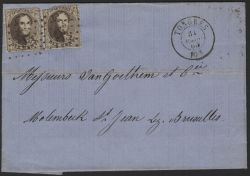 TONGRES
Messieurs Van Goethem et Cie
Molembeek St Jean Lz. Bruxelles